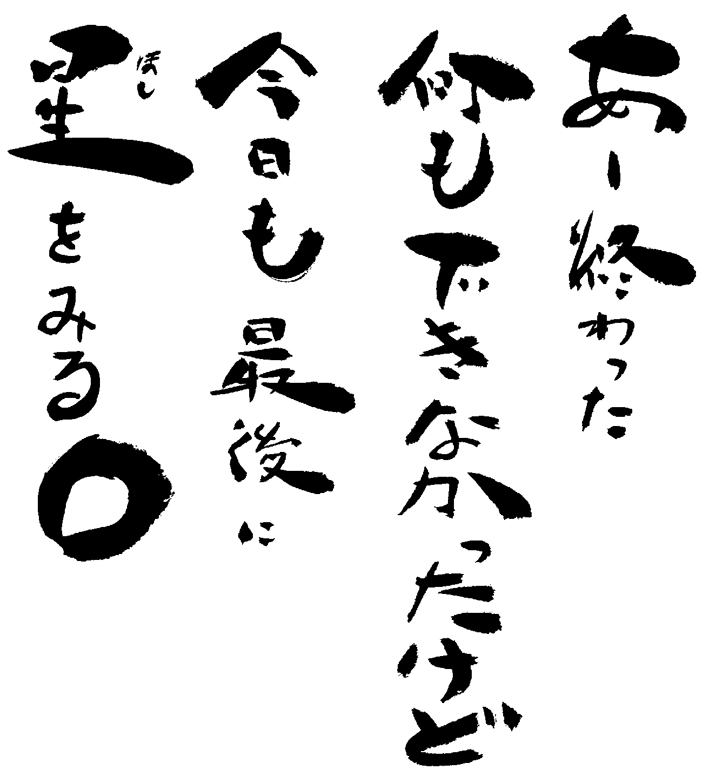 あー終わった
何もできなかったけど
今日も最後に
星をみる。
ほし